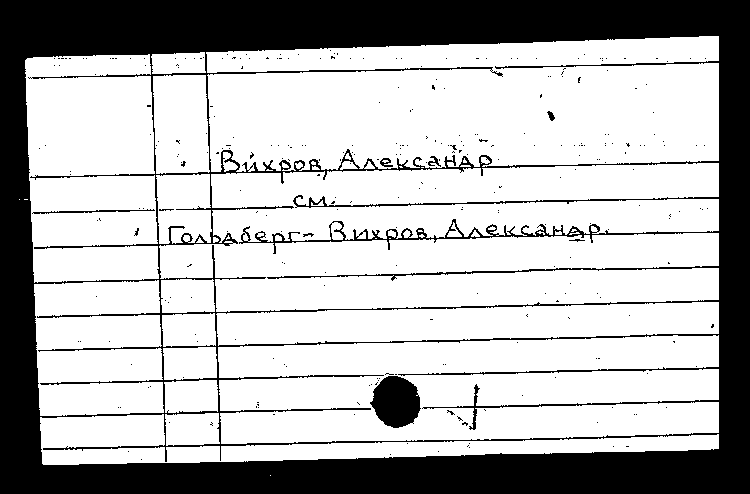 Вихров, Александр
см.
Гольдберг-Вихров, Александр.